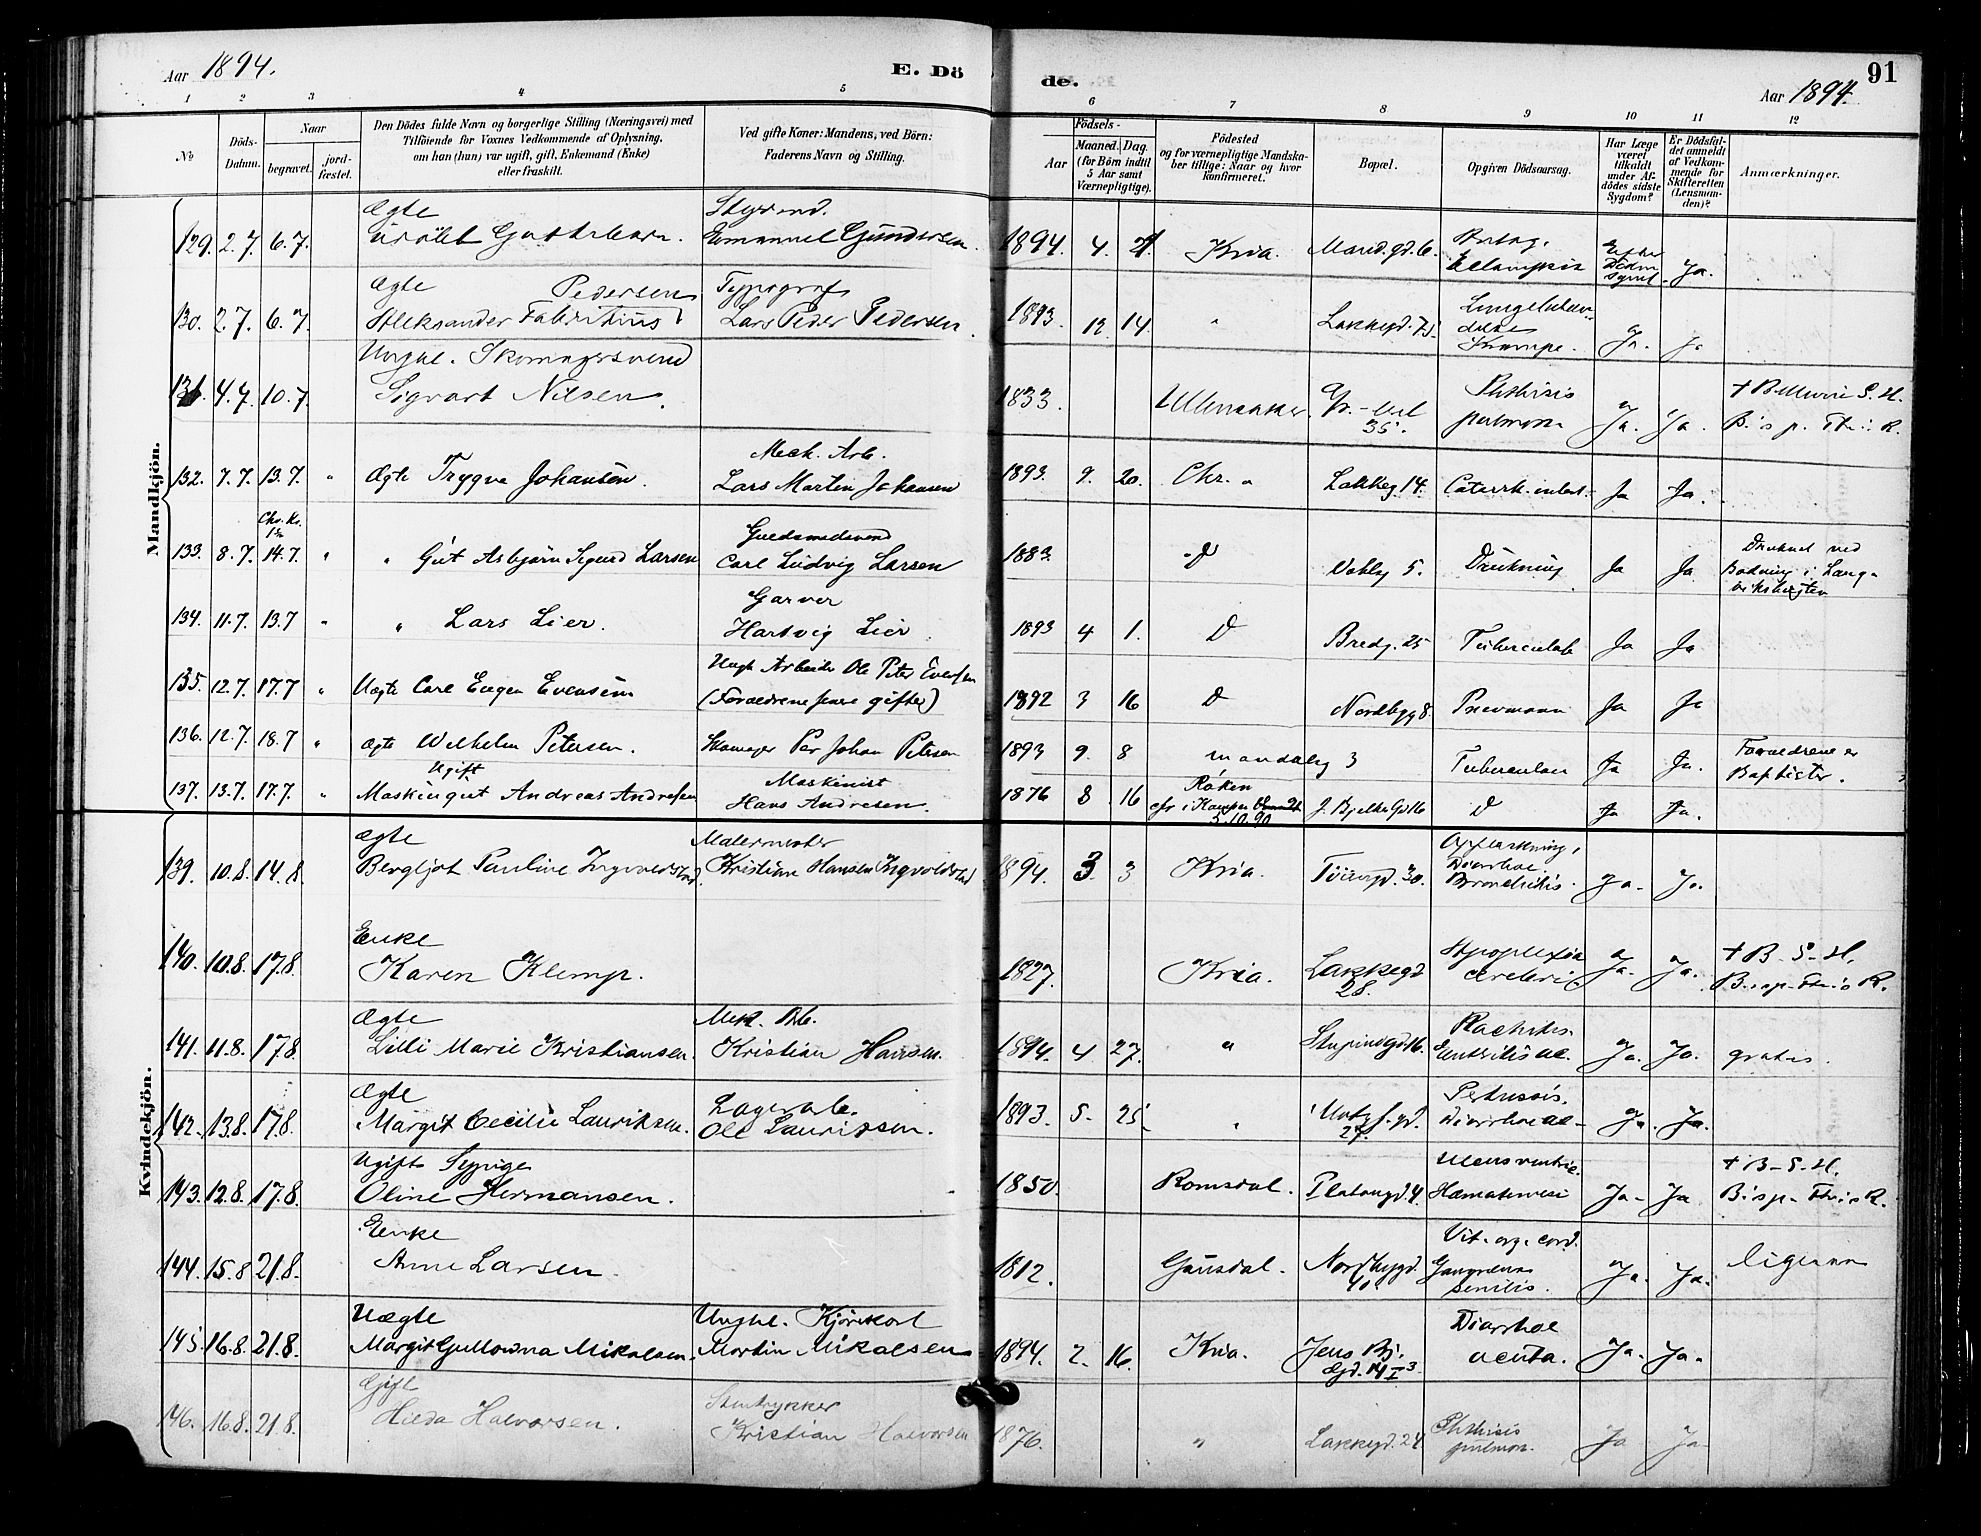 Aar 1894.
E. Dö
de.
91
Aar 1894.
1 2 3 4 5 6 7 8 9 10 11 12
No
Döds-
Datum.
Naar
begravet.
jord-
fæstet.
Den Dödes fulde Navn og borgerlige Stilling (Næringsvei) med
Tilföiende for Voxnes Vedkommende af Oplysning,
om han (hun) var ugift, gift, Enkemand (Enke)
eller fraskilt.
Ved gifte Koner: Mandens, ved Börn:
Faderens Navn og Stilling.
Födsels-
Aar
Maaned.
Dag.
(for Börn indtil
5 Aar samt
Værnepligtige).
Födested
og for værnepligtige Mandska-
ber tillige: Naar og hvor
konfirmeret.
Bopæl.
Opgiven Dödsaarsag.
Har Læge
været
tilkaldt
under Af-
dödes sidste
Sygdom?
Er Dödsfal-
det anmeldt
af Vedkom-
mende for
Skifteretten
(Lensman-
den)?
Anmærkninger.
Mandkjön.
Ægte
129. 2.7. 6.7. Guttebarn. Emanuel Gundersen. 1894. 4. Kria. Ja.
Ægte Pedersen Typograf
130. 2.7. 6.7. Aleksander Fabritius Lars Peder Pedersen. 1893. 12 14. " Lakkegd. 75 Krampe. Ja. Ja
Ungkl. Skomagersvend
131. 4.7. 10.7. Sigvart Nilsen. 1833. Ullensaker Phthisis pulmon. Ja. Ja.
Mek. Arb.
132. 7.7. 13.7. " Ægte Trygve Johansen. Lars Martin Johansen 1893. 9. 20. Chr. " Lakkeg. 14. Catarrh. intest. Ja Ja.
Guldsmedsvend
133. 8.7. 14.7. " " Gut Asbjørn Sigurd Larsen Carl Ludvig Larsen 1883. D Vahlsg 5. Drukning Ja Ja Druknet ved
Badning i Lang-
Garver
134. 11.7. 13.7 " " Lars Lier. Hartvig Lier. 1893 4 1. D Bredg. 25 Tuberculose Ja Ja
Ungk Arbeider Ole Peter Evensen
135. 12.7. 17.7 " Uægte Carl Eugen Evensen (Forældrene senere gifte) 1892 3 16 D Nordbyg 8. Pneumoni Ja Ja
136. 12.7. 18.7 " Ægte Wilhelm Petersen. Skomager Per Johan Petersen 1893 9. 8 Mandalsg 3 Tuberculose Ja Ja. Forældrene er
Baptister.
Ugift Maskinist Røken
137. 13.7. 17.7. " Maskingut Andreas Andresen Hans Andresen. 1876 8 16 cfr i Kampen 5.10.90 J. Bjelkes Gd 16 D Ja Ja.
Kvindekjön.
Ægte Malermester
139. 10.8. 14.8. Bergljot Pauline Ingvoldstad. Kristian Hansen Ingvoldstad 1894. 3. 3 Kria. Tøiengd. 30. Diarrhoe. Bronchitis. Ja. Ja.
Enke
140. 10.8. 17.8. Karen Klemp. 1827. Kria. Lakkegd 28. Apoplexia cerebri. Ja. Ja. † B. S. H.
Ægte Mek. Arb.
141. 11.8. 17.8 Lilli Marie Kristiansen. Kristian Hansen. 1894. 4 27. " Stupindgd 16. Rachitis. Ja. Ja. gratis.
Ægte Lagerarb.
142. 13.8. 17.8. Margit Cecilie Lauritsen. Ole Lauritsen. 1893. 5. 25. " 27. Pertussis. Ja. Ja.
Ugift Sypige
143. 12.8. 17.8. Oline Hermansen. 1850. Romsdal. Platousgd. 4 Ulcus ventric. Hæmatemesi Ja. Ja † B. S. H.
Enke
144. 15.8 21.8. Anne Larsen. 1812. Gausdal. Nordbygd. 40. Vit. org. cord. Gangræna senilis. Ja. Ja. ligeman
Uægte Ungkl. Kjørekarl
145. 16.8. 21.8. Margit Gullowna Mikalsen. Martin Mikalsen 1894. 2. 16. Kria. Jens Bj. Gd. 14 I 3 Diarrhoe acuta. Ja. Ja.
Gift Stentrykker
146. 16.8. 21.8. Hilda Halvorsen. Kristian Halvorsen 1876. " Lakkegd. 24 Phthisis pulmon. Ja Ja